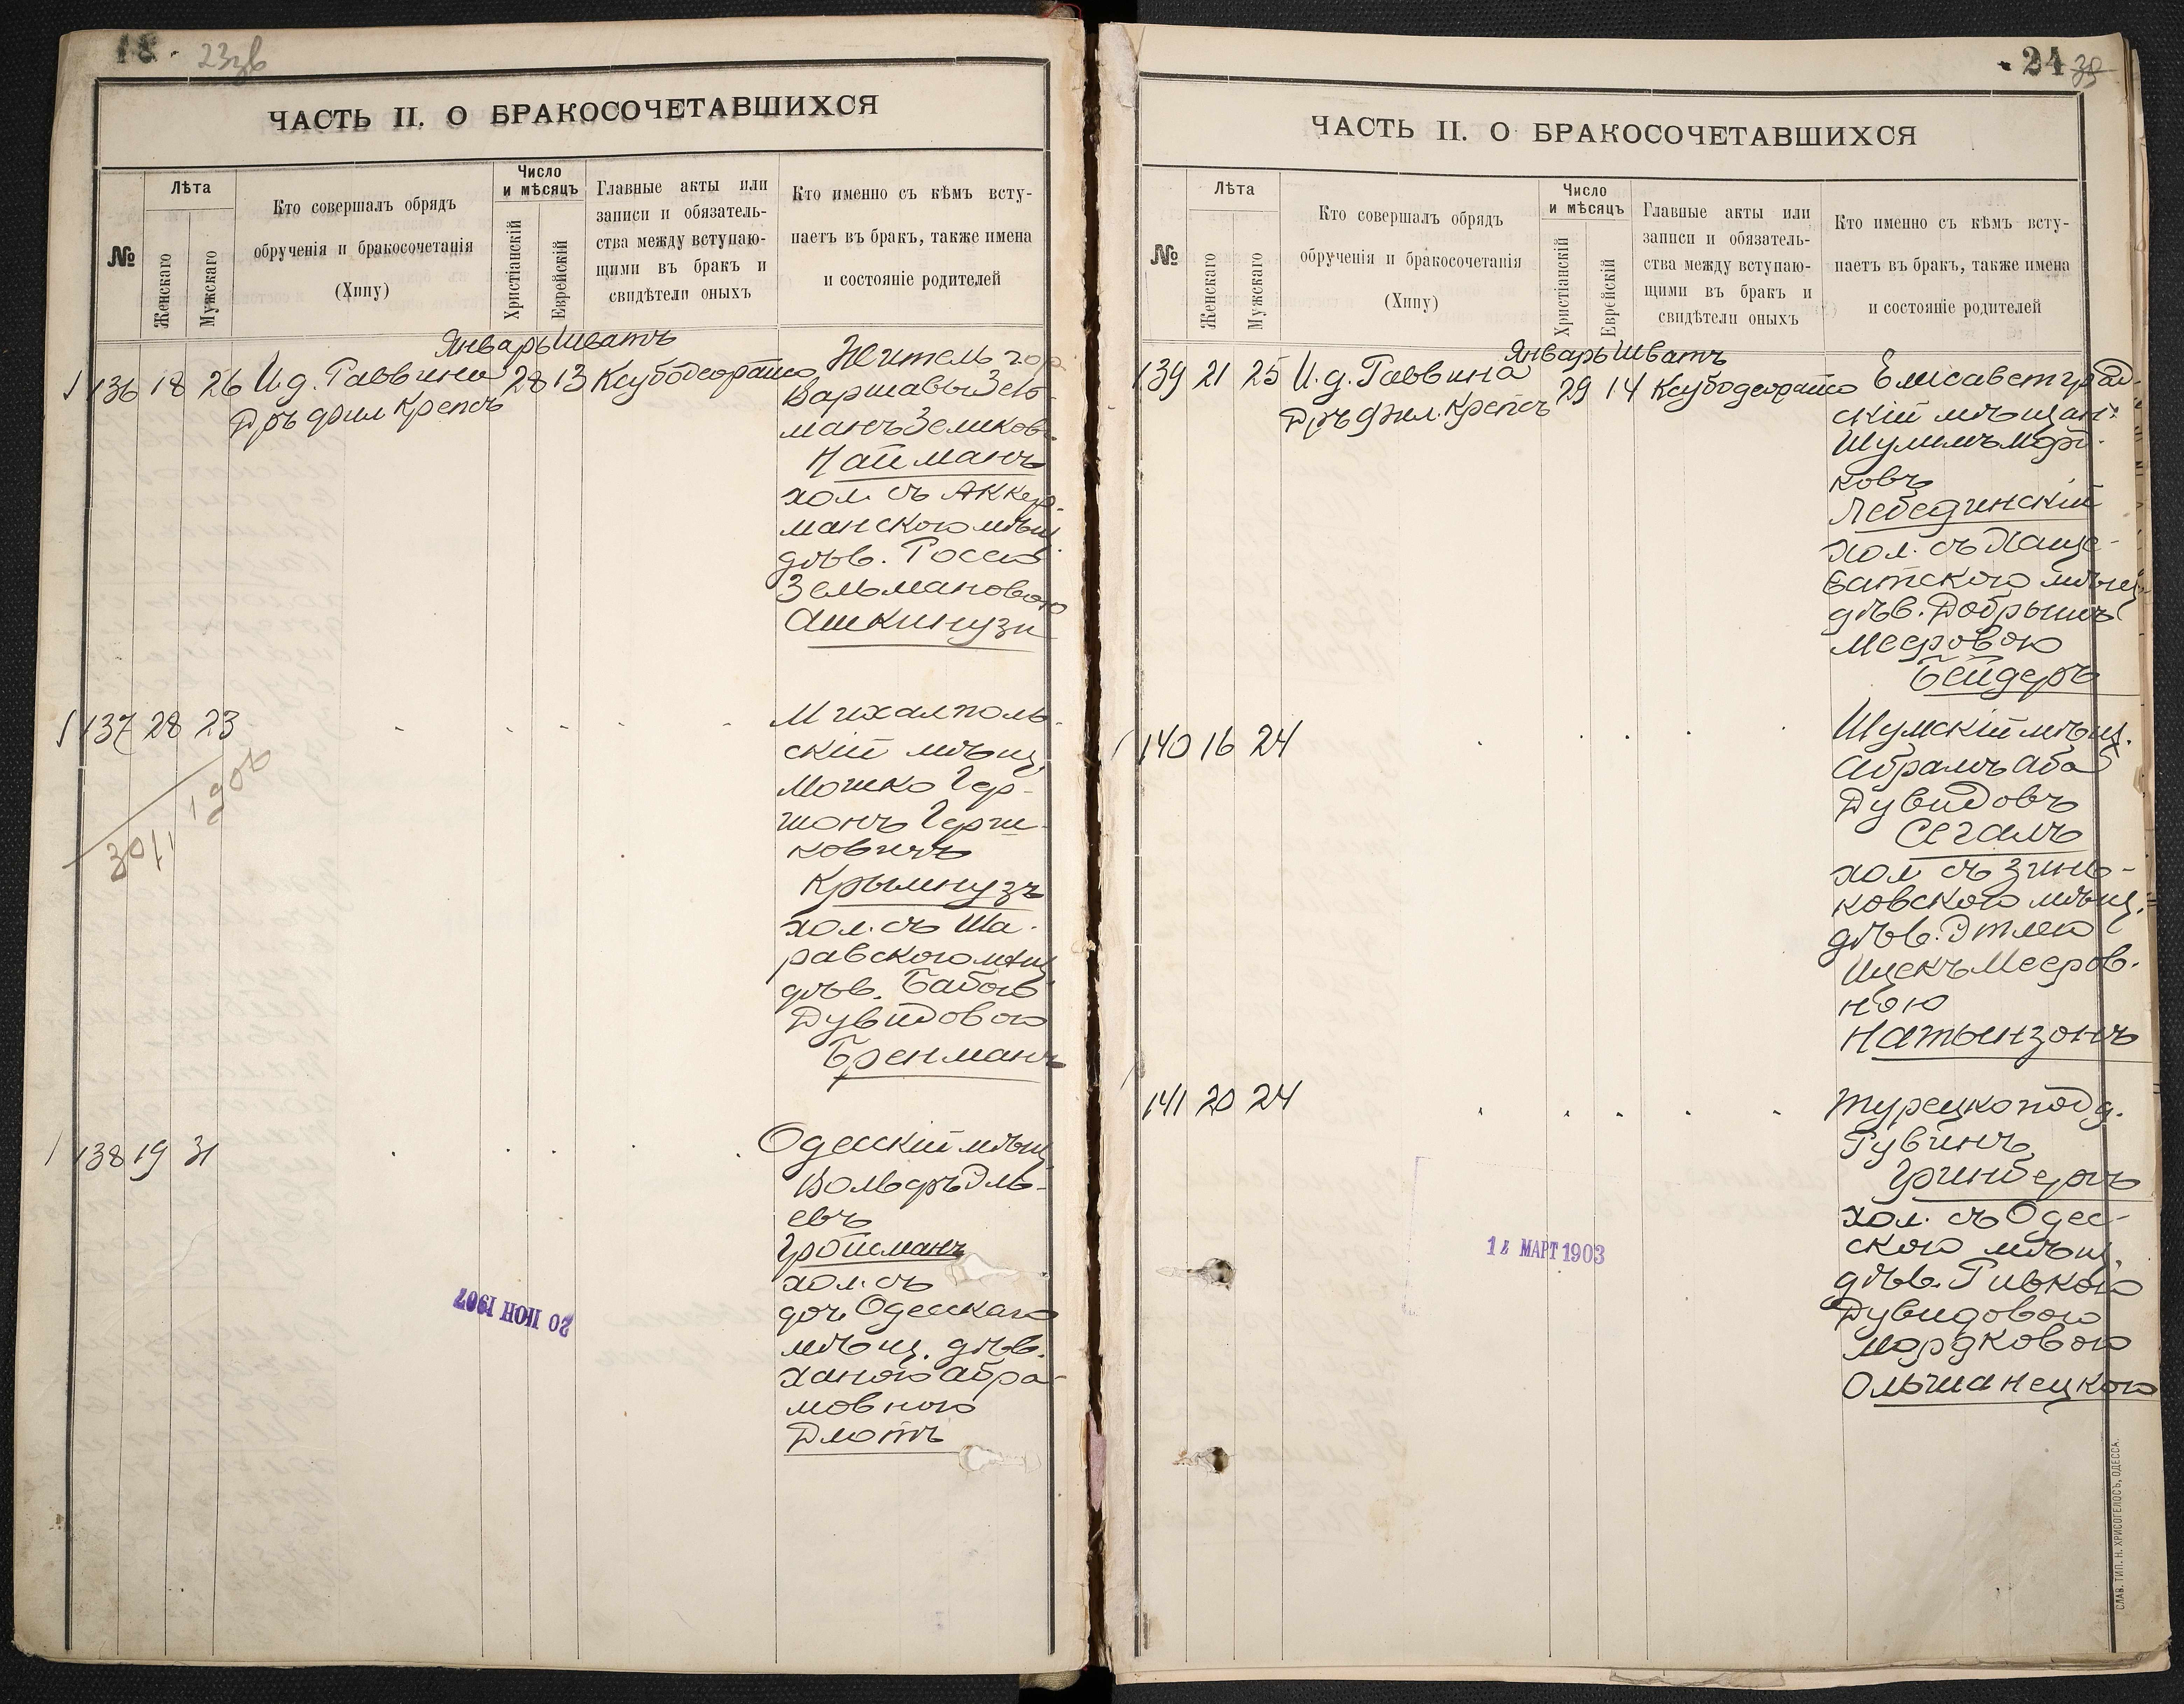 18. 23зв
ЧАСТЬ II. О БРАКОСОЧЕТАВШИХСЯ
№
Лѣта
Женскаго
Мужскаго
Кто совершалъ обрядъ
обрученія и бракосочетанія
(Хипу)
Число
и мѣсяцъ
Христіанскій
Еврейскій
Главные акты или
записи и обязатель-
ства между вступаю-
щими въ бракъ и
свидѣтели оныхъ
Кто именно съ кѣмъ всту-
паетъ въ бракъ, также имена
и состояніе родителей
Январь Шватъ
136 18 26 И.д. Раввина 28 13 Ксубодеорайто
Дръ фил Крепсъ
Житель гор
Варшавы Зель-
манъ Зеликовъ
Найманъ
хол. съ Аккер-
манскою мѣщ.
дѣв. Россею
Зельмановою
Ашкинузи
137 28 23
3011
1906
Михалполь-
скій мѣщ.
Мошко Гер-
шонъ Герш-
ковичъ
Крымнузъ
хол. съ Ша-
равскою мѣщ.
дѣв. Бабою
Дувидовою
Бренманъ
138 19 31
Одесскій мѣщ.
Вольфъ Эль-
евъ
Гройсманъ
хол. съ
доч. Одесскаго
мѣщ. дѣв.
Ханою Абра-
мовною
Длотъ
20 ІЮН 1907
24 39
ЧАСТЬ II. О БРАКОСОЧЕТАВШИХСЯ
№
Лѣта
Женскаго
Мужскаго
Кто совершалъ обрядъ
обрученія и бракосочетанія
(Хипу)
Число
и мѣсяцъ
Христіанскій
Еврейскій
Главные акты или
записи и обязатель-
ства между вступаю-
щими въ бракъ и
свидѣтели оныхъ
Кто именно съ кѣмъ всту-
паетъ въ бракъ, также имена
и состояніе родителей
Январь Шватъ
139 21 25 И.д. Раввина 29 14 Ксубодеорайто
Дръ Фил. Крепсъ
Елисаветград-
скій мѣщан.
Шулимъ Морд-
ковъ
Лебединскій
хол. съ Хаще-
ватскою мѣщ.
дѣв. Добрышъ
Мееровою
Бейдеръ
140 16 24
Шумскій мѣщ.
Абрамъ Аба
Дувидовъ
Сегалъ
хол. съ Зинь-
ковскою мѣщ.
дѣв. Этлею
Ицекъ Мееров-
ною
Натынзонъ
141 20 24
Турецкоподд.
Рувинъ
Гринбергъ
хол. съ Одес-
скою мѣщ.
дѣв. Ривкою
Дувидовою
Мордковою
Ольшанецкою
14 МАРТ 1903
СЛАВ. ТИП. Н. ХРИСОГЕЛОСЪ, ОДЕССА.